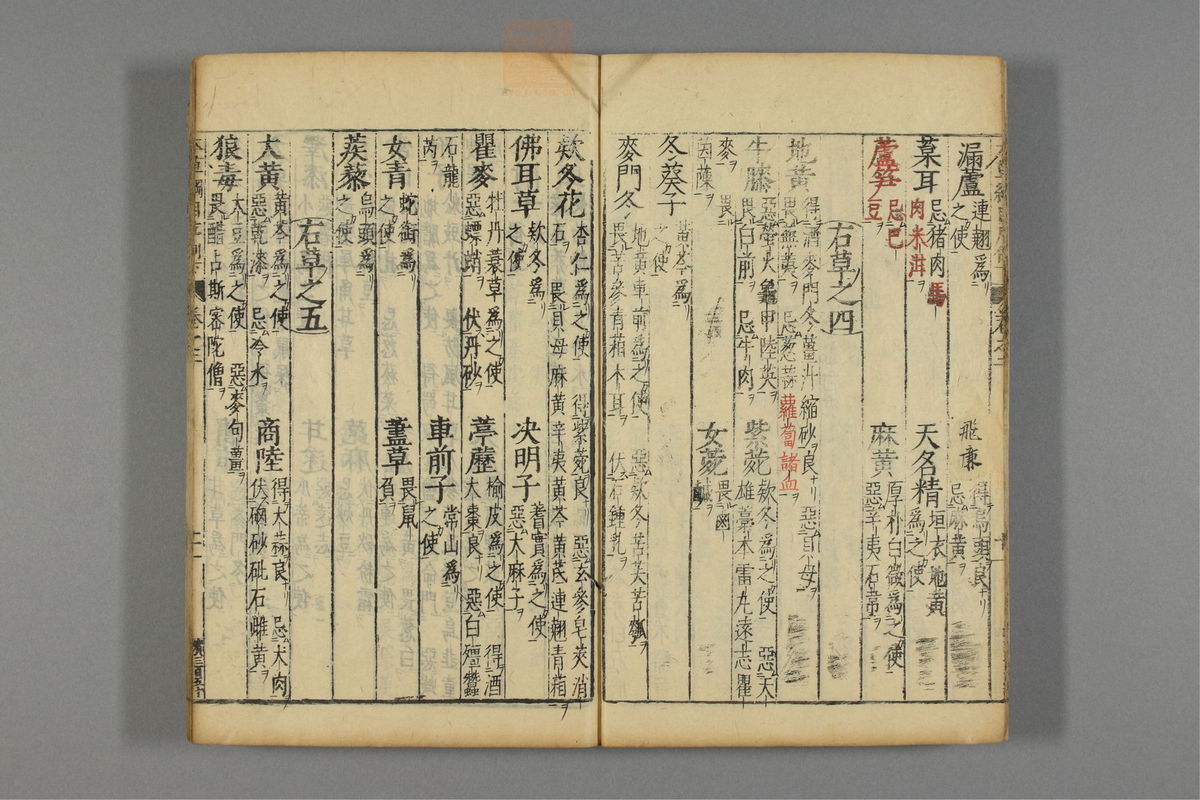 漏蘆 連翹為之使 飛廉 得烏頭良
葈耳 忌猪肉馬肉米泔 天名精 垣衣地黃為之使
蘆笋 忌巴豆 麻黃 厚朴白薇為之使 惡辛夷石常
右草之四
地黃 得酒麥門冬薑汁縮砂良 惡貝母 畏蕪荑 忌葱蒜蘿蔔諸血
牛膝 惡螢火龜甲陸英 畏白前 忌牛肉 紫菀 欵冬為之使 惡天雄藁本雷丸遠志瞿
麥 畏茵蔯 女菀 畏鹵鹹
冬葵子 黃芩為之使
麥門冬 地黃車前為之使 惡欵冬苦芙苦瓠 畏苦參青葙木耳 伏石鍾乳
欵冬花 杏仁為之使 得紫菀良 惡玄參皂莢消石 畏貝母麻黃辛夷黃芩黃芪連翹青葙
佛耳草 欵冬為之使 决明子 蓍實為之使 惡大麻子
瞿麥 牡丹蓑草為之使 惡螵蛸 伏丹砂 葶藶 榆皮為之使 得酒大棗良 惡白殭蠶
石龍芮 車前子 常山為之使
女青 蛇銜為之使 藎草 畏鼠負
蒺藜 烏頭為之使
右草之五
大黃 黃芩為之使 惡乾漆 忌冷水 商陸 得大蒜良 忌犬肉 伏硇砂砒石雌黃
狼毒 大豆為之使 惡麥句薑 畏醋占斯密陀僧